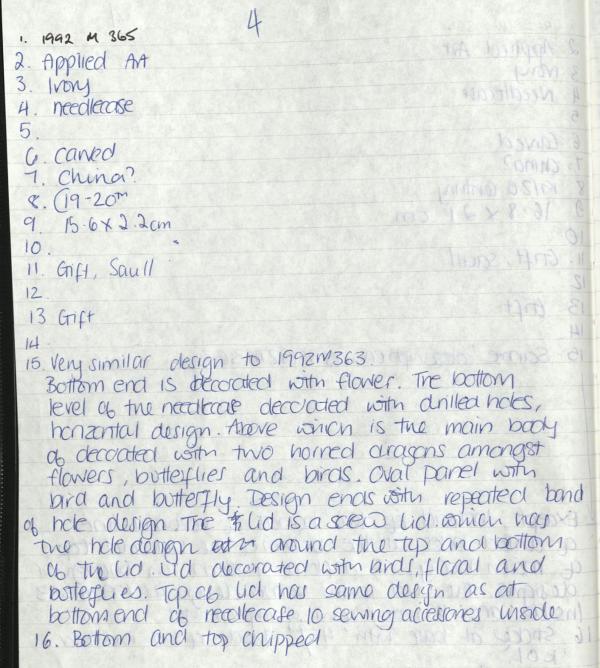 4
1. 1992 M 365
2. Applied Art
3. Ivory
4. needlecase
5.
6. carved
7. China?
8. C19-20th
9. 15.6 x 2.2cm
10.
11. Gift, Saull
12
13 Gift
14
15. Very similar design to 1992M363.
Bottom end is decorated with flower. The bottom
level of the needlecase decorated with drilled holes,
horizontal design. Above which is the main body
of decorated with two horned dragons amongst
flowers, butterflies and birds. Oval panel with
bird and butterfly. Design ends with repeated band
of hole design. The lid is a screw lid which has
the hole design around the top and bottom
of the lid. Lid decorated with birds, floral and
butterflies. Top of lid has same design as at
bottom end of needlecase 10 sewing accessories inside
16. Bottom and top chipped